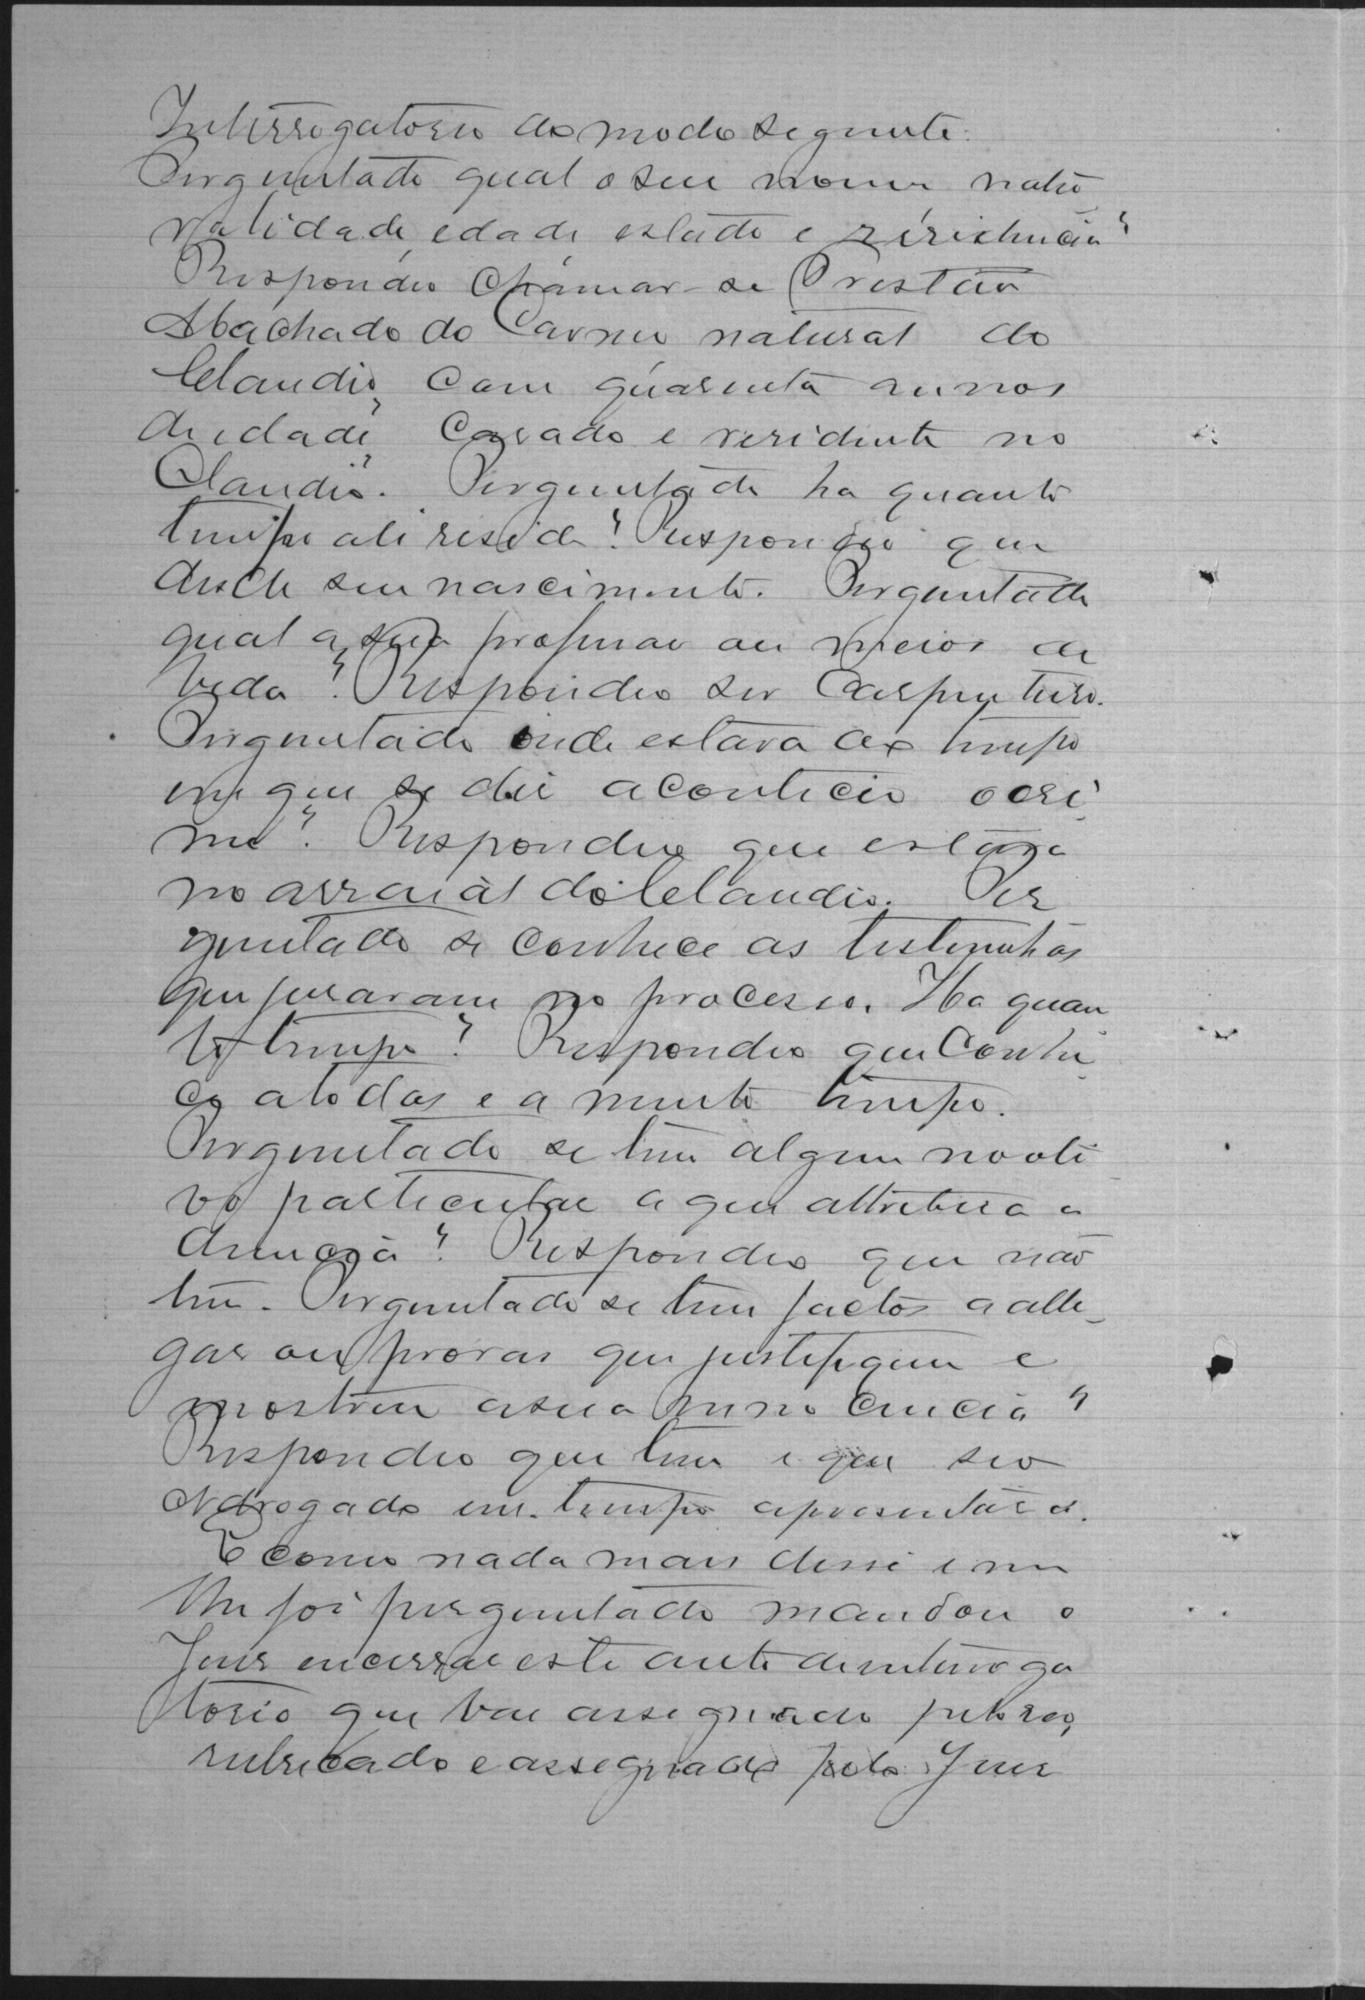 Interrogatorio do modo seguinte:
Perguntado qual o seu nome natu
ralidade, edade estado e rezidencia?
Respondeu chamar-se Tristão
Machado do Carmo natural do
Claudio, com quarenta annos
de idade, Casado e rezidente no
Claudio. Perguntado ha quanto
tempo ali reside? Respondeu que
desde seu nascimento. Perguntado
qual a sua profissão ou meios de
vida? Respondeu ser Carpinteiro.
Perguntado onde estava ao tempo
em que se diz aconteceu o cri
me? Respondeu que estava
no arraial do Claudio. Per
guntado se conhece as testimunhas
que juraram no processo. Ha quan
to tempo? Respondeu que Conhe
ce a todas e a muito tempo.
Perguntado se tem algum moti
vo particular a que attribua a
denuncia? Respondeu que não
tem. Perguntado se tem factos a alle
gar ou provas que justifiquem e
mostrem a sua innocencia?
Respondeu que tem e que seo
Advogado em tempo apresentará.
E como nada mais disse e nem
lhe foi perguntado mandou o
Juiz encerrar este auto de interroga
torio que vai assignado pelo reo,
rubricado e assegnado pelo Juiz